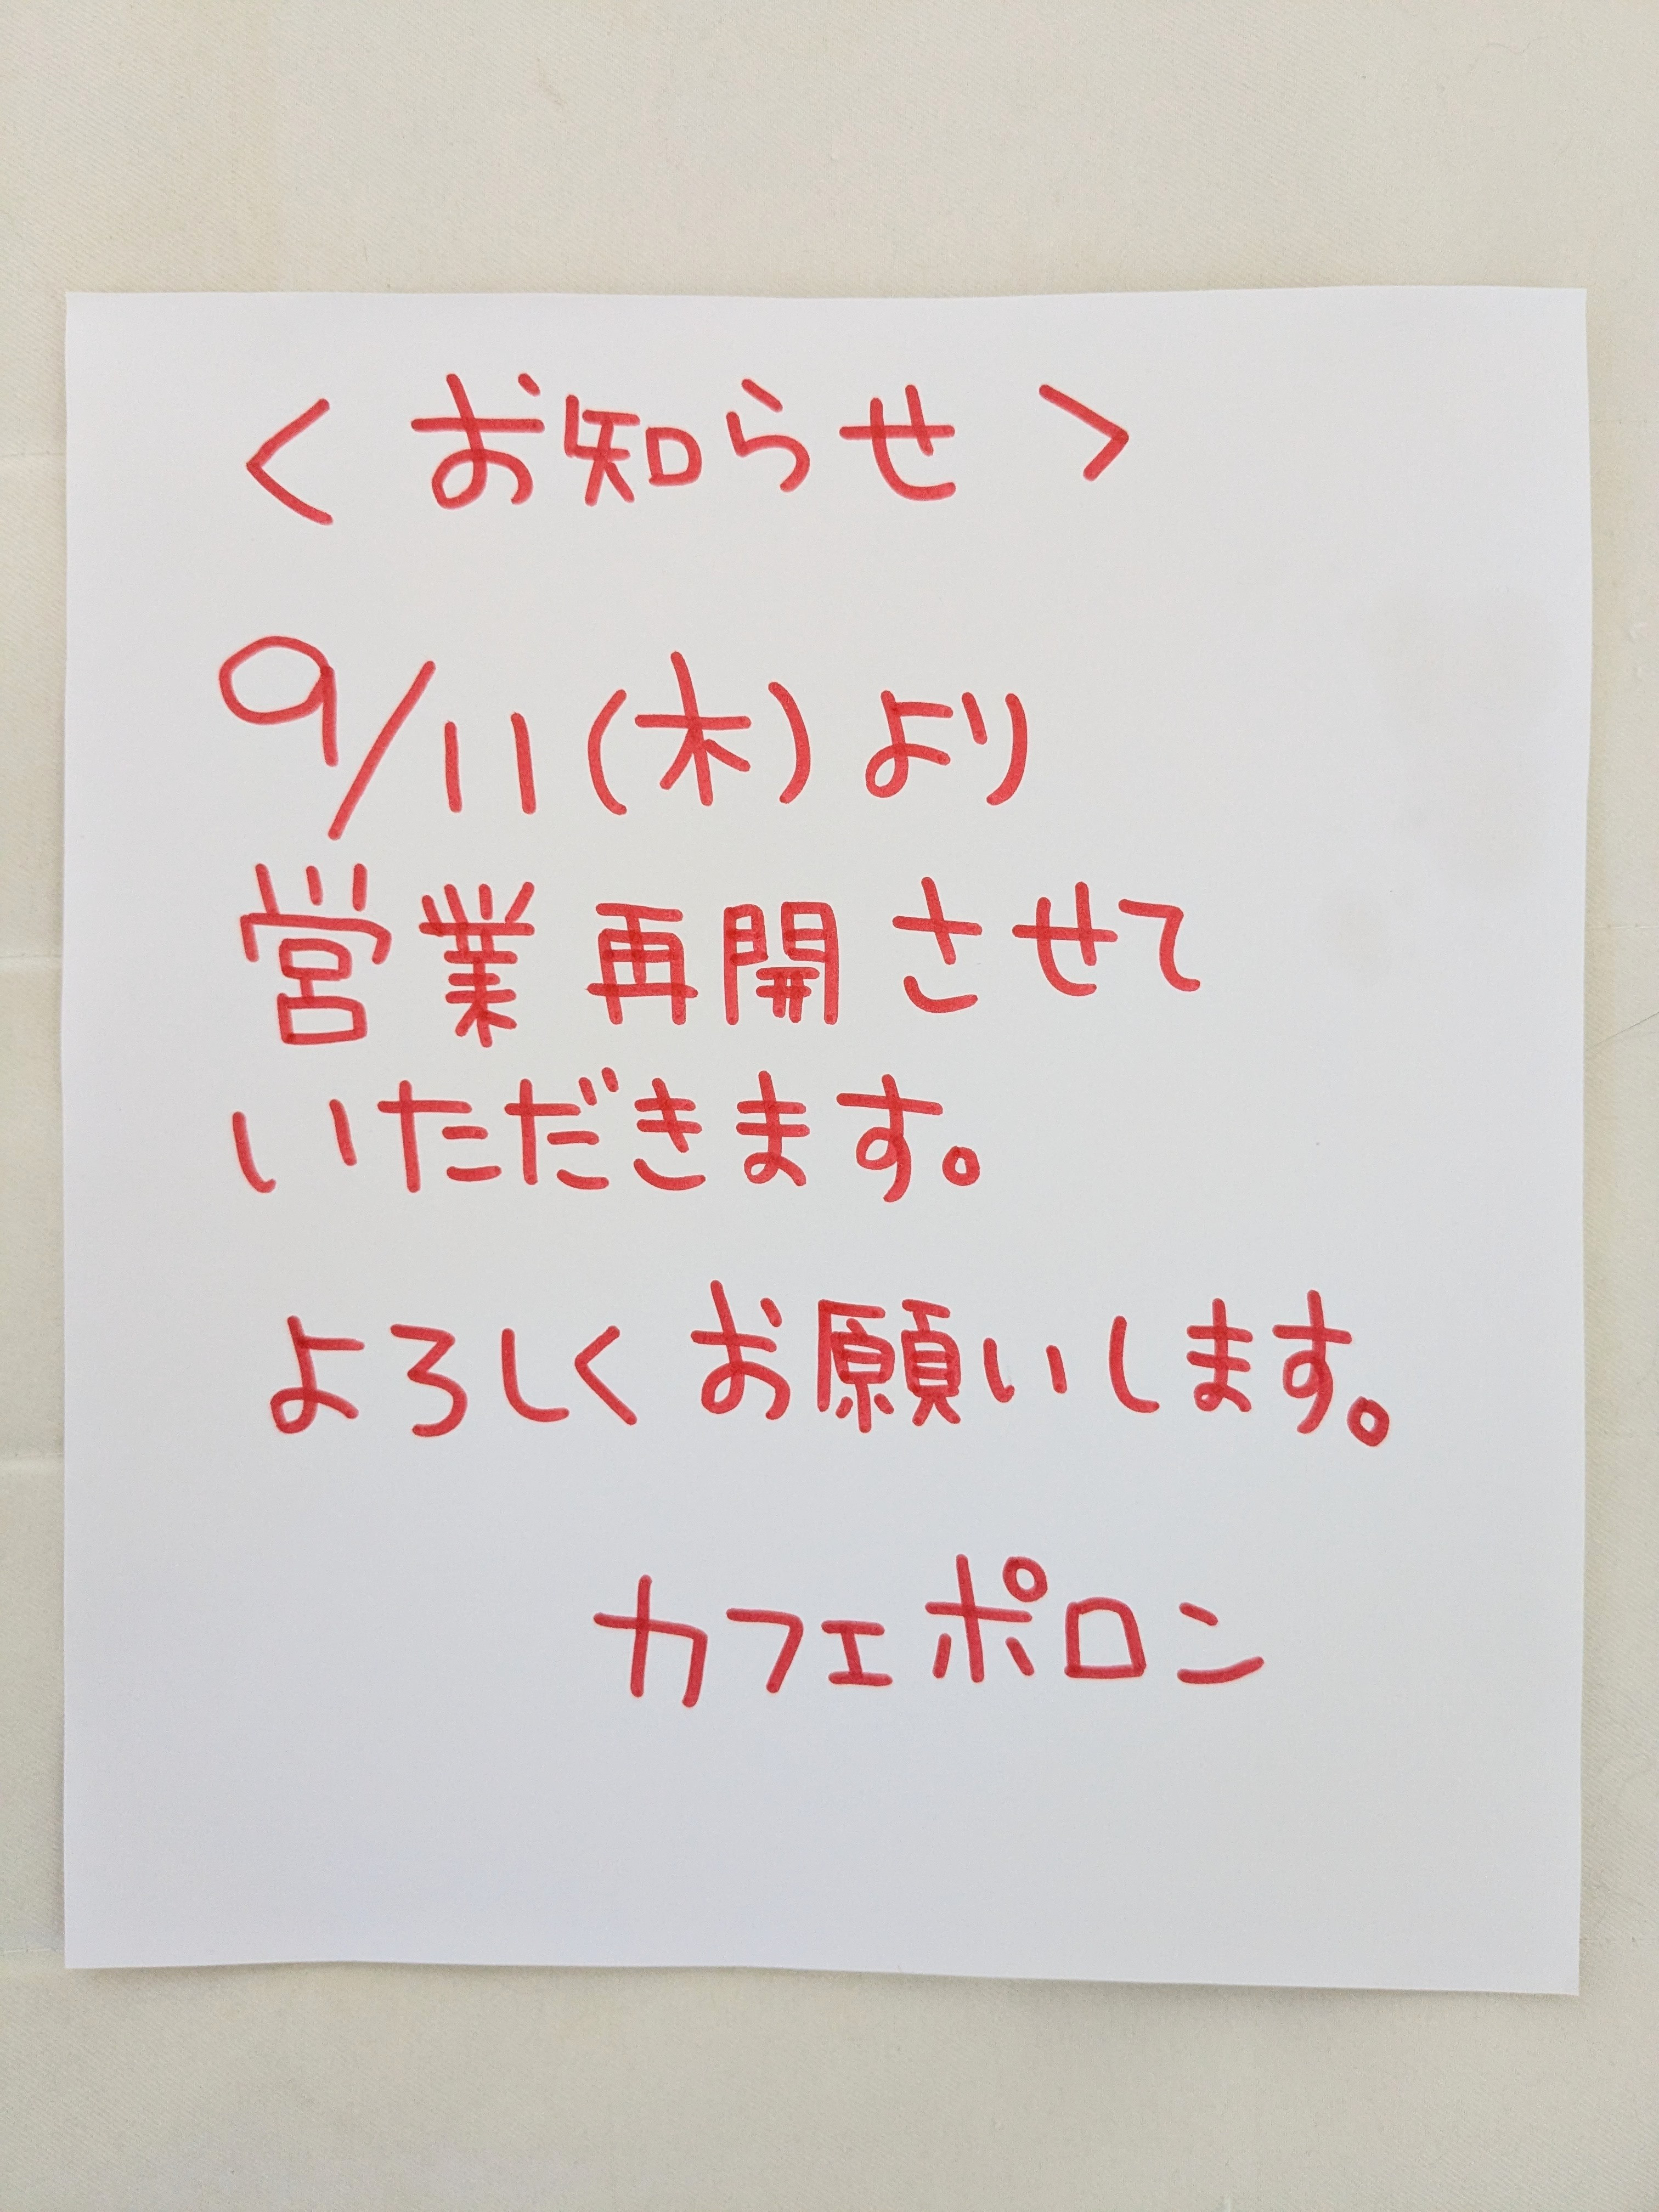 < お知らせ >
9/11(木)より
営業再開させて
いただきます。
よろしくお願いします。
カフェポロン